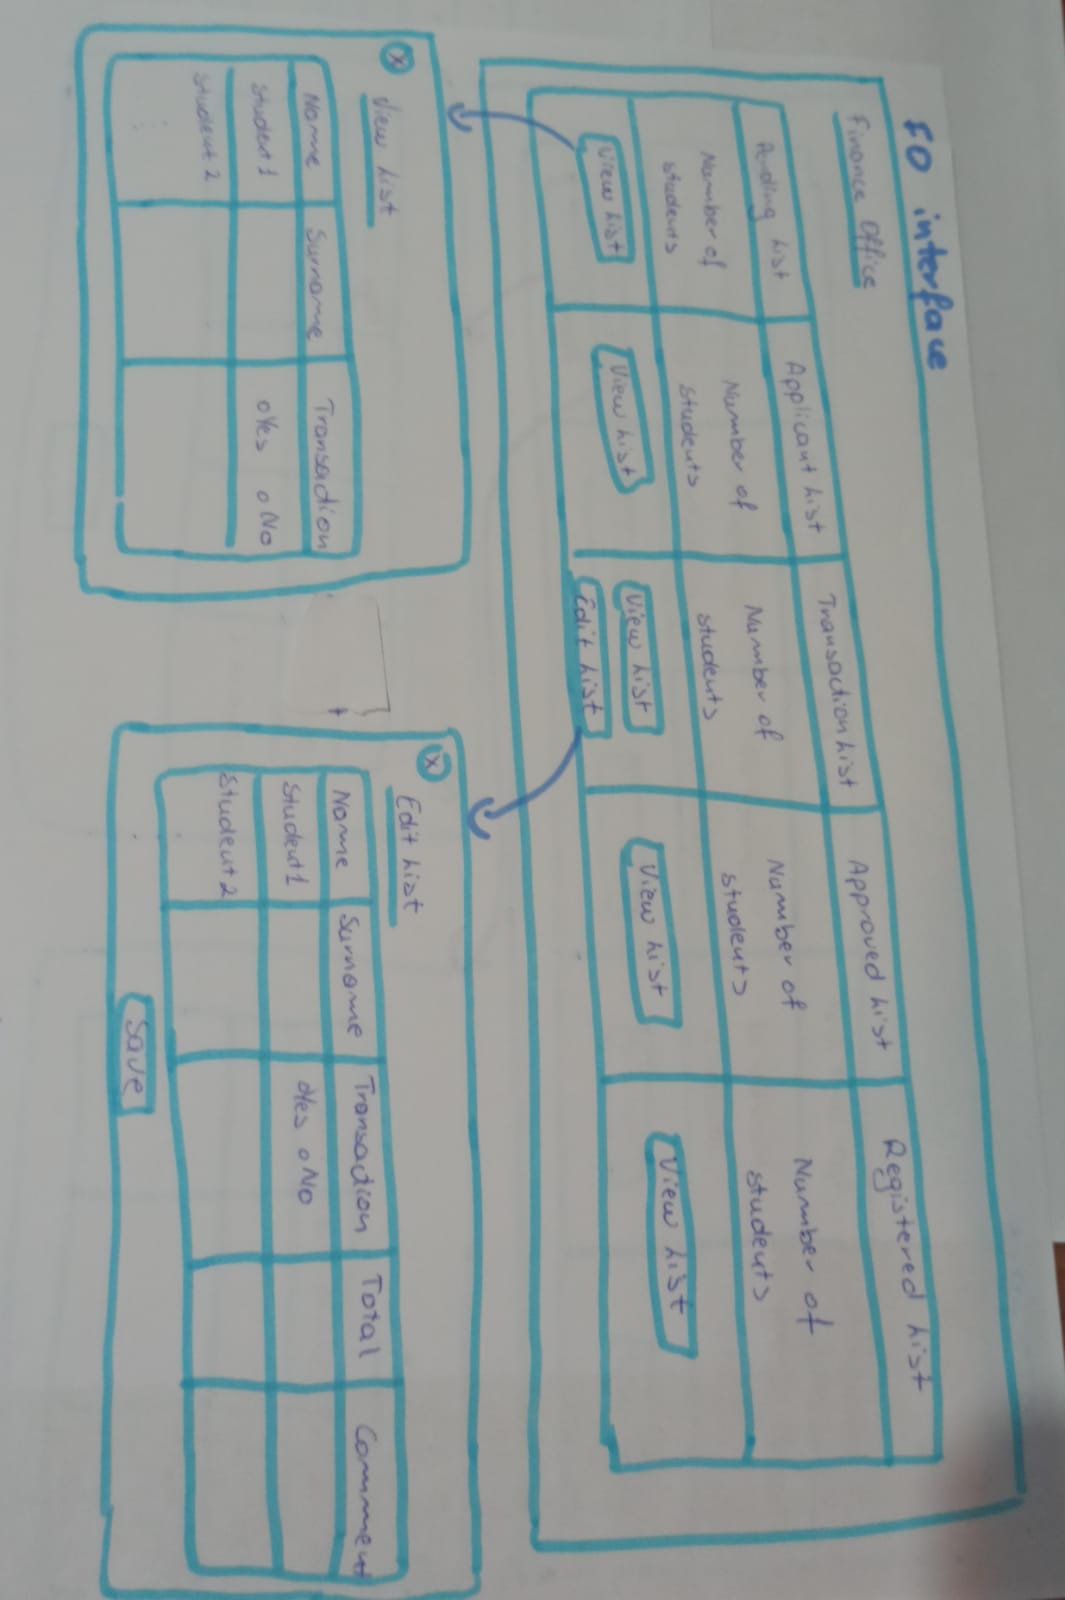 FO interface
Finance Office
Pending List
Applicant List
Transaction List
Approved List
Registered List
Number of
students
Number of
students
Number of
students
Number of
students
Number of
students
View List
View List
View List
Edit List
View List
View List
x
View List
Name
Surname
Transaction
Student 1
oYes o No
Student 2
x
Edit List
Name
Surname
Transaction
Total
Comment
Student 1
oYes o No
Student 2
Save